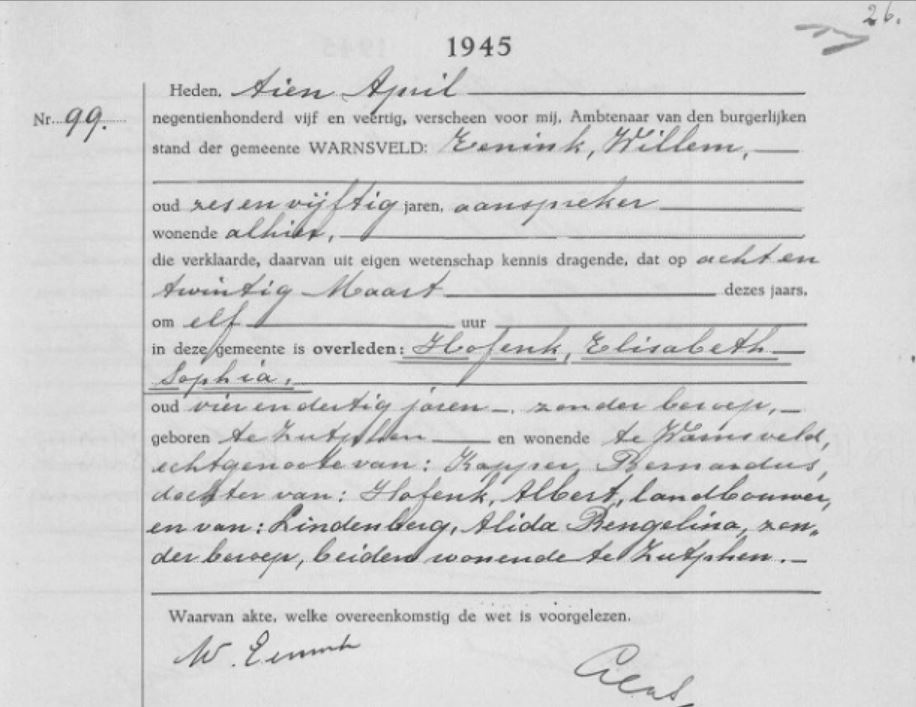 26.
1945
Nr. 99.
Heden, tien April
negentienhonderd vijf en veertig, verscheen voor mij, Ambtenaar van den burgerlijken
stand der gemeente WARNSVELD: Eenink, Willem,
oud zes en vijftig jaren, aanspreker
wonende alhier,
die verklaarde, daarvan uit eigen wetenschap kennis dragende, dat op acht en
twintig Maart dezes jaars,
om elf uur
in deze gemeente is overleden: Hofenk, Elisabeth
Sophia,
oud vier en dertig jaren, zonder beroep,
geboren te Zutphen en wonende te Warnsveld,
echtgenoote van: Kapper, Bernardus,
dochter van: Hofenk, Albert, landbouwer,
en van: Lindenberg, Alida Bengelina, zon„
der beroep, beiden wonende te Zutphen.
Waarvan akte, welke overeenkomstig de wet is voorgelezen.
W. Eenink